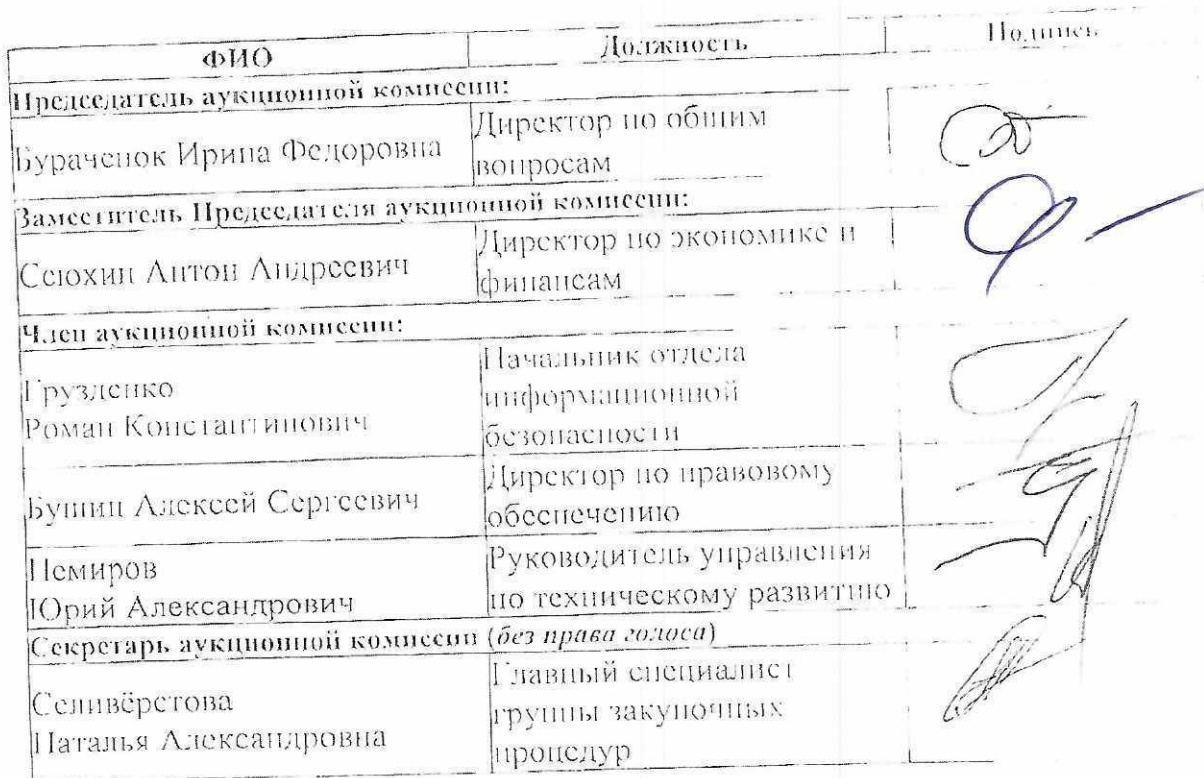 ФИО Должность Подпись
Председатель аукционной комиссии:
Бураченок Ирина Федоровна
Директор по общим
вопросам
Заместитель Председателя аукционной комиссии:
Сеюхин Антон Андреевич
Директор по экономике и
финансам
Член аукционной комиссии:
Грузденко
Роман Константинович
Начальник отдела
информационной
безопасности
Бушин Алексей Сергеевич
Директор по правовому
обеспечению
Немиров
Юрий Александрович
Руководитель управления
по техническому развитию
Секретарь аукционной комиссии (без права голоса)
Селивёрстова
Наталья Александровна
Главный специалист
группы закупочных
процедур